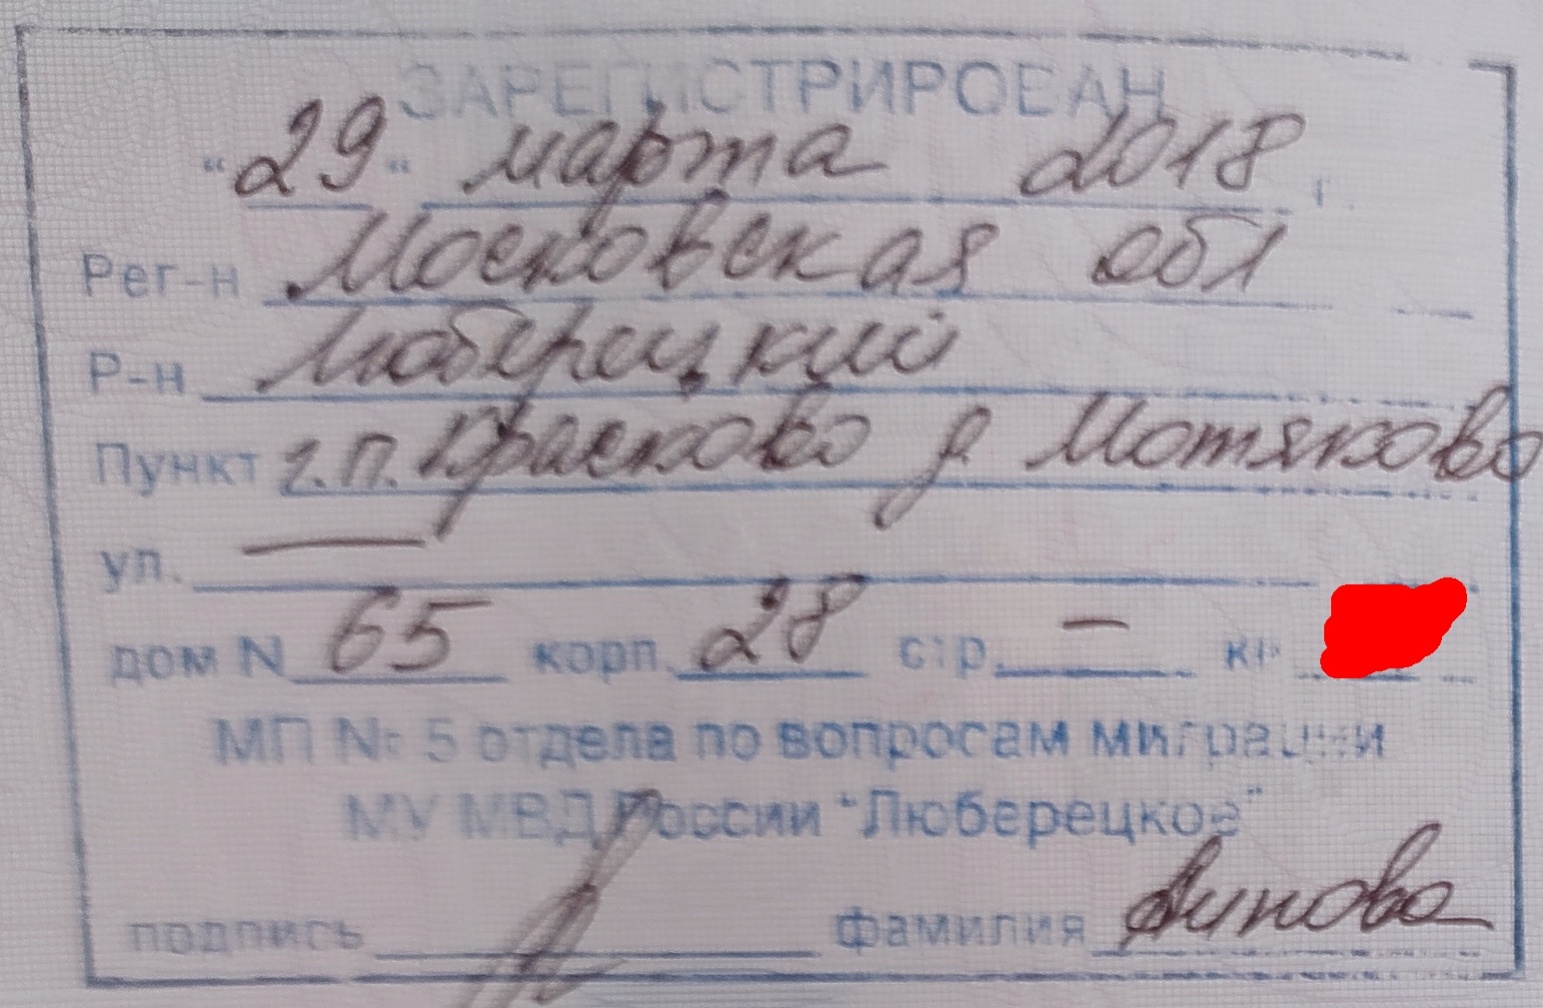 ЗАРЕГИСТРИРОВАН
"29" марта 2018 г.
Рег-н Московская обл
Р-н Люберецкий
Пункт г.п. Красково д. Мотяково
ул. —
дом N 65 корп. 28 стр. — кв
МП № 5 отдела по вопросам миграции
МУ МВД России "Люберецкое"
подпись фамилия